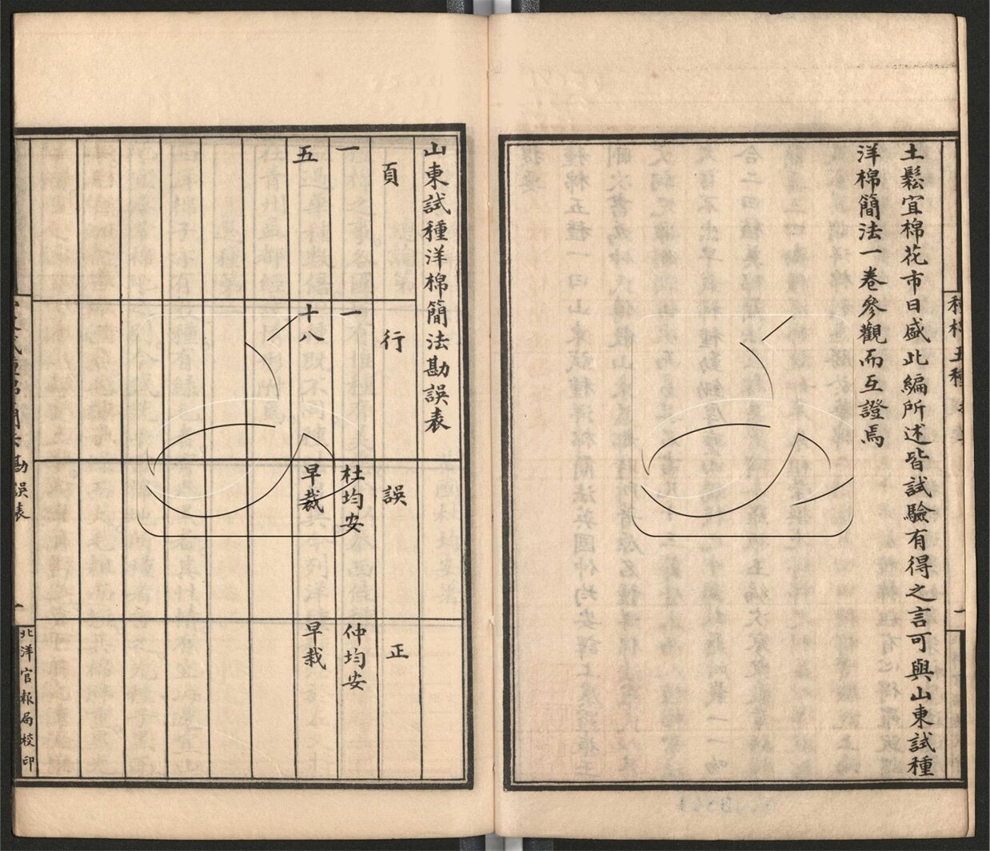 土鬆宜棉花市日盛此編所述皆試驗有得之言可與山東試種
洋棉簡法一卷參觀而互證焉
山東試種洋棉簡法勘誤表
頁 行 誤 正
一 一 杜均安 仲均安
五 十八 早裁 早栽
勘誤表
一
北洋官報局校印